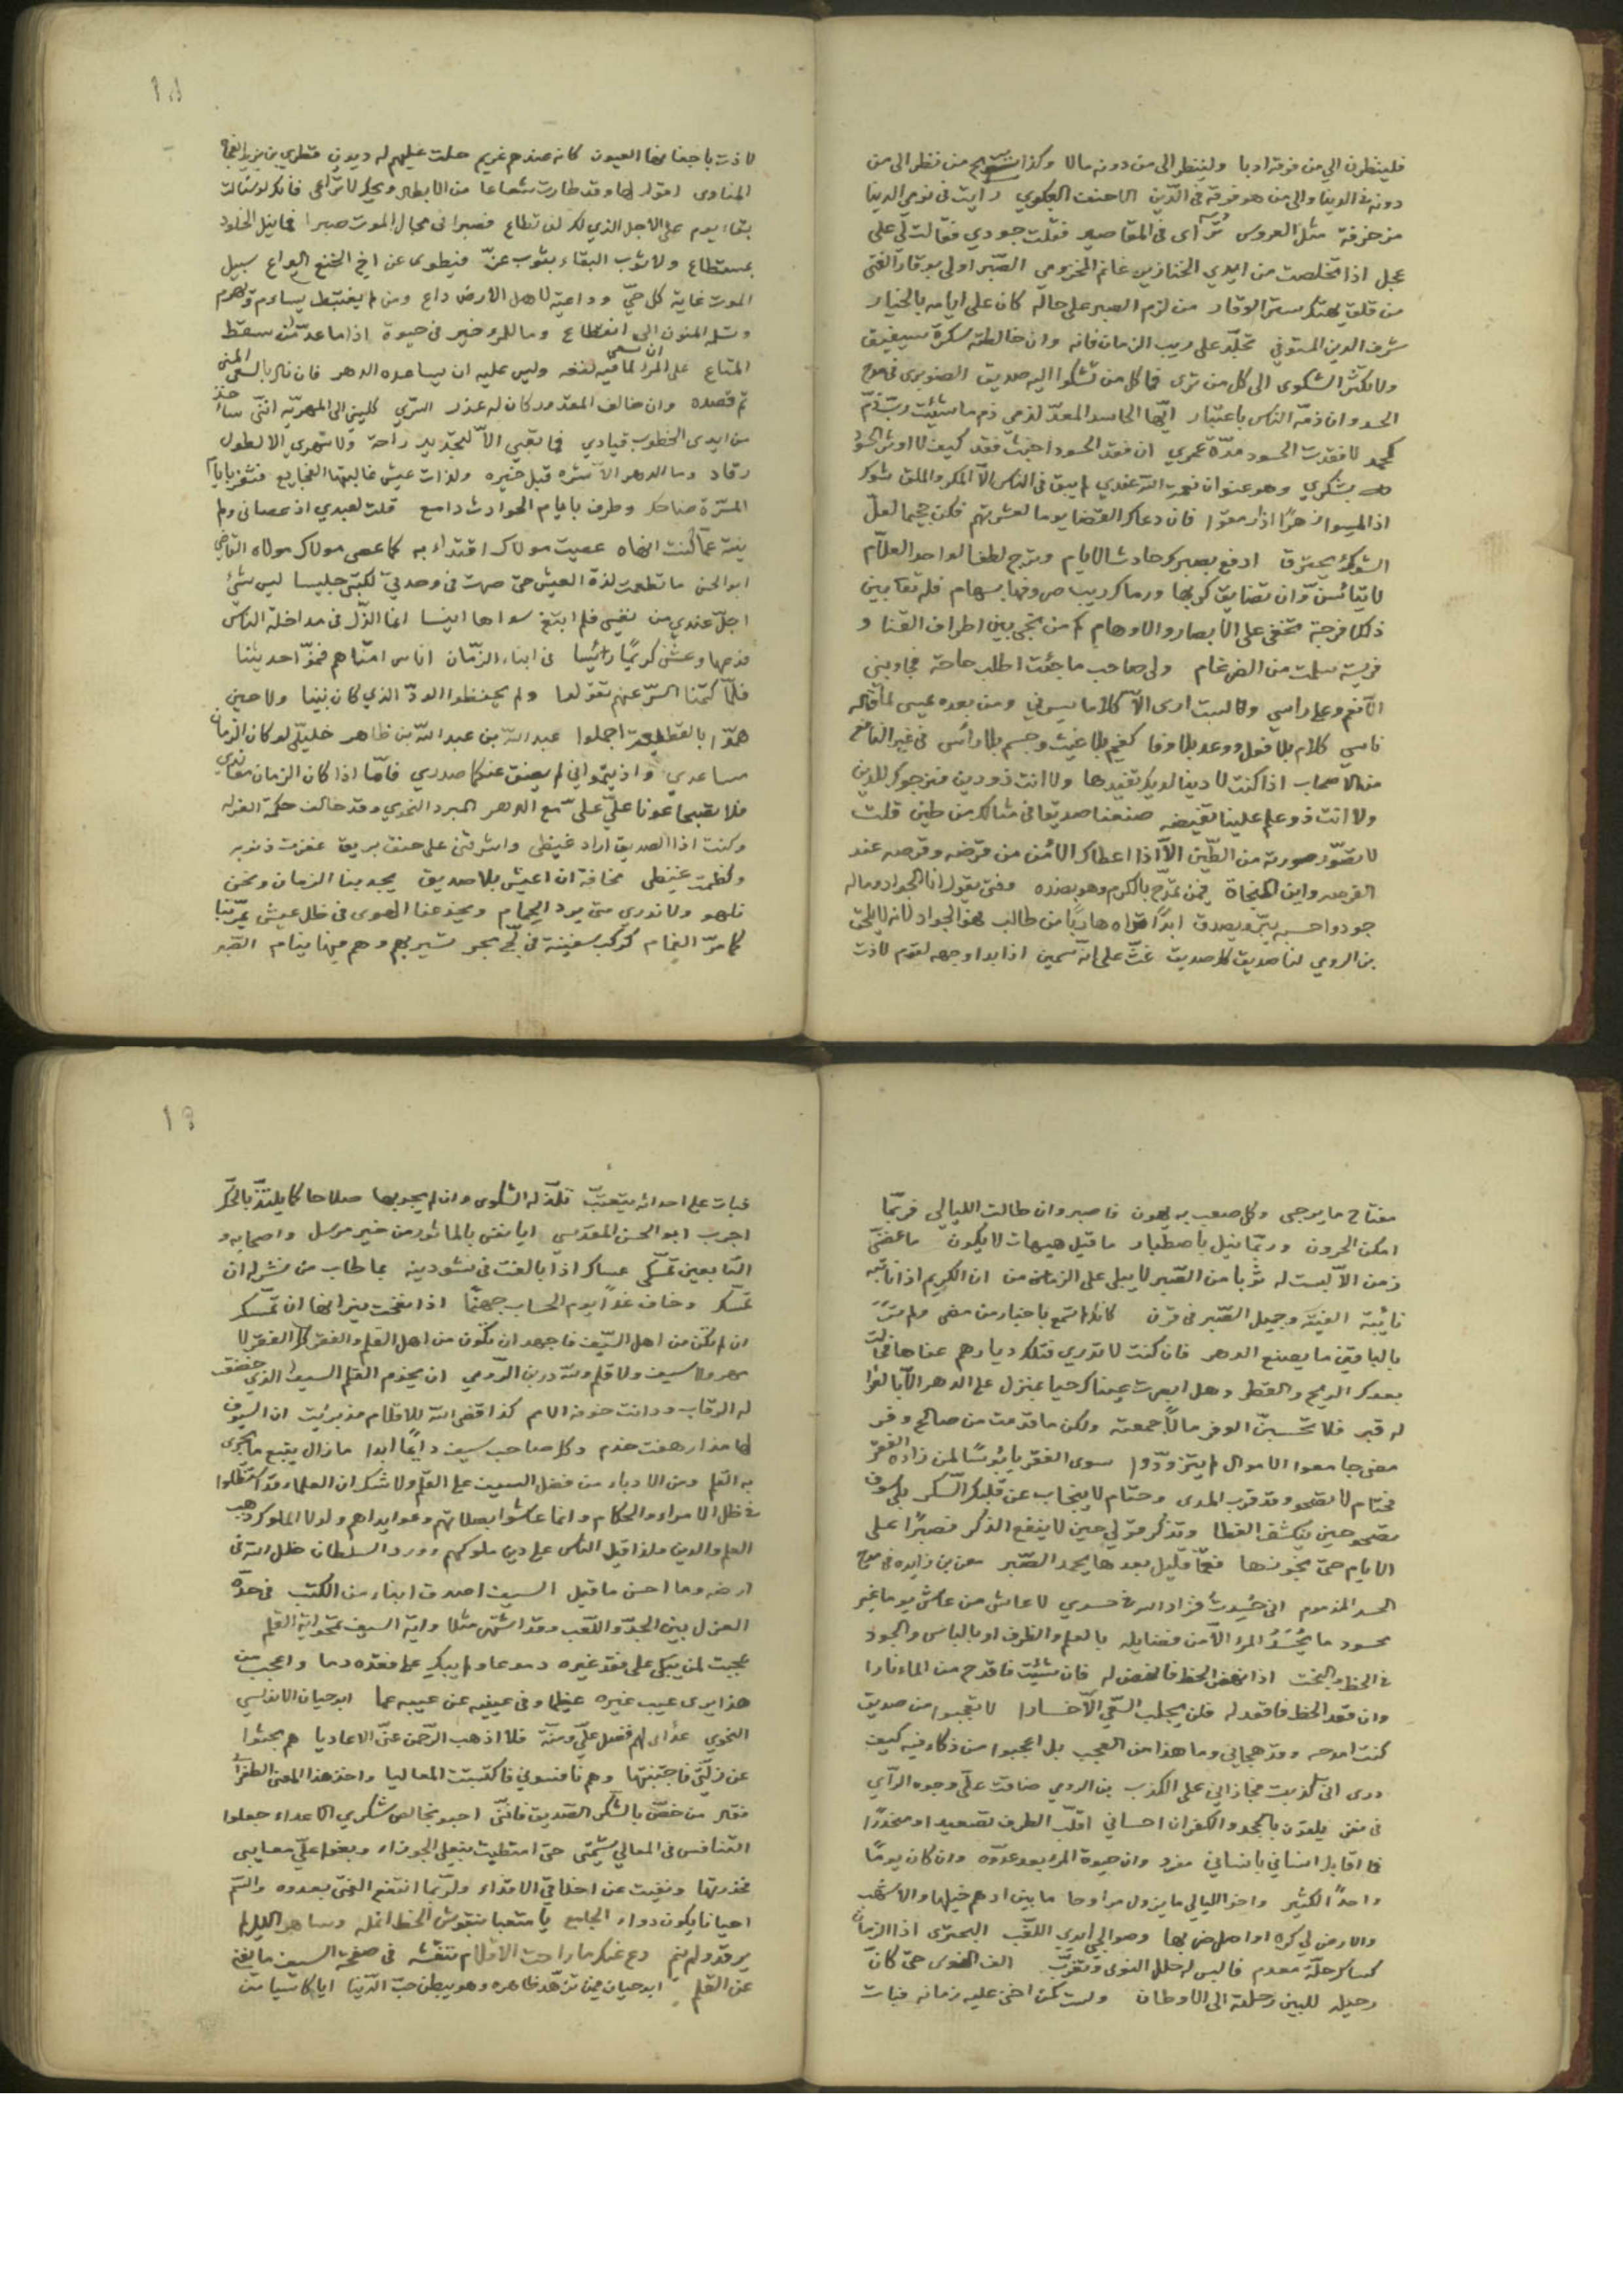 فلينظرن الي من فوقه ادبا ولينظر الي من دونه مالا وكذا من نظر الى من
دونه في الدنيا والى من هو فوقه في الدين الاحنف العكبري رايت في نومي الدنيا
مزخرفة مثل العروس تراآى في المقاصير فقلت جودي فقالت لي على
عجل اذا تخلصت من ايدي الخنازير غانم المخزومي الصبر اولى بوقار الفتى
من قلق يهتك ستر الوقار من لزم الصبر على حاله كان على ايامه بالخيار
شرف الدين المستوفي تجلد على ريب الزمان فانه وان خالطته سكرة سيفيق
ولا تكثر الشكوى الى كل من ترى فما كل من تشكوا اليه صديق الصنوبري في مدح
الحسد وان ذمه الناس باعتبار ايها الحاسد المعد لذمي ذم ما شئت رب ذم
كحمد لا فقدت الحسود مدة عمري ان فقد الحسود اخبث فقد كيف لا اوثر الحسود
بشكري وهو عنوان نعمة الله عندي لم يبق في الناس الا المكر والملق شوك
اذا لمسوا زهرا اذا رمقوا فان دعاك القضا يوما لعشرتهم فكن جحيما لعل
الشوك يحترق ادفع بصبرك حادث الايام وترج لطف الواحد العلام
لا تيأسن وان تضايق كربها ورماك ريب صروفها بسهام فله تعا بين
ذلك فرجة تخفى على الابصار والاوهام كم من نجى بين اطراف القنا و
فريسة سلمت من الضرغام ولي صاحب ما جئت اطلب حاجة فجاوبني
الا نعم وعلى راسي وقالست ارى الا كلاما يسرني ومن بعده عيسى لما قاله
ناسي كلام بلا فعل ووعد بلا وفا كغيم بلا غيث وجسم بلا رأس في غير النافع
من الاصحاب اذا كنت لا دينا لديك تفيدها ولا انت ذو دين فنرجوك للدين
ولا انت ذو علم علينا تفيضه صنعنا صديقا في مثالك من طين قلت
لا تصور صورته من الطين الا اذا اعطاك الأمن من قرضه وقرصه عند
القرص واين النجاة فيمن تمدح بالكرم وهو بضده وفتى يقول انا الجواد وماله
جود واحسبه يبر ويصدق ابدا تراه هاربا من طالب فهو الجواد لانه لا يلحق
بن الرومي لنا صديق كلا صديق غث على انه سمين اذا بدا وجهه لقوم لاذت
لاذت باجفانها العيون كانه عندهم غريم حلت عليهم له ديون قطري بن
المناوي اقول لها وقد طارت شعاعا من الابطال ويحك لا تراعي فانك لو سئالت
بقاء يوم على الاجل الذي لك لن تطاع فصبرا في مجال الموت صبرا فما نيل الخلود
بمستطاع ولا ثوب البقاء بثوب عز فيطوى عن اخي الخنع اليراع سبيل
الموت غاية كل حي وداعيه لاهل الارض داع ومن لم يغتبط يسأم ويهرم
وتسلمه المنون الى انقطاع وما للمرء خير في حيوة اذا ما عد من سقط
المتاع على المرء ان يسعى لما فيه نفعه وليس عليه ان يساعده الدهر فان نال بالسعى المنى
تم قصده وان خالف المقدور كان له عذر السري كليني الى المهرية انني ساخذ
من ايدي الخطوب قيادي فما تعبي الا لتجديد راحة ولا سهري الا لطول
رقاد وما الدهر الا شره قبل خيره ولذات عيش غالبتها الفجايع فثغر بايام
المسرة ضاحك وطرف بايام الحوادث دامع قلت لعبدي اذ عصاني ولم
ينته عما كنت انهاه عصيت مولاك اقتداء به كما عصى مولاك مولاه القاضي
ابو الحسن ما تطعمت لذة العيش حتى صرت في وحدتي لكتبي جليسا ليس شئ
اجل عندي من نفسي فلم ابتغ سواها انيسا انما الذل في مداخلة الناس
فدعها وعش كريما رئيسا في ابناء الزمان اناس امناهم فنموا حديثنا
فلما كتمنا السر عنهم تقولوا ولم يحفظوا الود الذي كان بيننا ولا حين
هموا بالقطيعة اجملوا عبد الله بن عبد الله بن طاهر خليلي لو كان الزمان
مساعدي واذيتموني لم يضق عنكما صدري فاما اذا كان الزمان معاندي
فلا تصبحا عونا علي على مع الدهر المبرد النحوي وقد خالف حكمة العزله
وكنت اذا الصديق اراد غيظي واشرقني على حنق بريق غفرت ذنوبه
وكظمت غيظي مخافة ان اعيش بلا صديق يجد بنا الزمان ونحن
نلهو ولا ندري متى يرد الحمام ويخدعنا الهوى في ظل عيش يمر بنا
كما مر الغمام كركب سفينة في لج بحر تسير بهم وهم فيها ينام الصبر
مفتاح ما يرجى وكل صعب به يهون فاصبر وان طالت الليالي فربما
امكن الحرون وربما نيل باصطبار ما قيل هيهات لا يكون ما عضني
زمن الا لبست له ثوبا من الصبر لا يبلى على الزمان من ان الكريم اذا نابته
نائبة الفيته وجميل الصبر في قرن كانك لم تسمع باخبار من مضى ولم تر
بالباقين ما يصنع الدهر فان كنت لا تدري فتلك ديارهم عفاها محال
بعدك الريح والقطر وهل ابصرت عيناك حيا بمنزل على الدهر الا بالعرا
له قبر فلا تحسبن الوفر مالا جمعته ولكن ما قدمت من صالح وفر
مضى جامعوا الاموال لم يتزودوا سوى الفقر يا بؤسا لمن زاده الفقر
فحتام لا تصحو وقد قرب المدى وحتام لا ينجاب عن قلبك السكر بلى سوف
تصحو حين ينكشف الغطا وتذكر قولي حين لا ينفع الذكر فصبرا على
الايام حتى تجوزها فعما قليل بعدها يحمد الصبر معن بن زايده في مدح
الحسد المذموم اني حسدت فزاد الله في حسدي لا عاش من عاش يوما غير
محسود ما يحسد المرء الا من فضايله بالعلم والظرف او بالباس والجود
في الحظ والبخت اذا نهض الحظ فانهض له فان شئت فاقدح من الماء نارا
وان قعد الحظ فاقعد له فلن يجلب السعي الا خسارا لا تعجبوا من صديق
كنت امدحه وقد هجاني وما هذا من العجب بل اعجبوا من ذكاء فيه كيف
درى اني كذبت فجازاني على الكذب بن الرومي ضاقت علي وجوه الرأي
في نفر يلقون بالجحد والكفران احساني اقلب الطرف تصعيدا ومنحدرا
فما اقابل انساني بانساني مفرد وان حيوة المرء بعد عدوه وان كان يوما
واحدا لكثير واخو الليالي ما يزول مراوحا ما بين ادهم خيلها والاشهب
والارض لي كره اواصل ضربها وصوالجي ايدي اللغب البحتري اذا الزمان
كساك حلة معدم فالبس له حلل النوى وتغرب الف النوى حتى كان
رحيله للبين رحلته الى الاوطان ولست كمن اخنى عليه زمانه فبات
فبات على احداثه يتعتب تلذ له الشكوى وان لم يجد بها صلاحا كما يلتذ بالحك
اجرب ابو الحسن المقدسي ايا نفس بالماثور من خير مرسل واصحابه و
التابعين تمسكي عساك اذا بالغت في نشر دينه بما طاب من نشر له ان
تمسك وخاف غدا يوم الحساب جهنما اذا نفحت نيرانها ان تمسك
ان لم تكن من اهل السيف فاجهد ان تكون من اهل القلم والفقر كل الفقر لا
سيف ولا قلم ولله در بن الرومي ان يخدم القلم السيف الذي خضعت
له الرقاب ودانت خوفه الامم كذا قضى الله للاقلام مذ بريت ان السيوف
لها مذ ارهفت خدم وكل صاحب سيف دايما ابدا ما زال يتبع ما يجرى
به القلم ومن الادباء من فضل السيف على القلم ولا شك ان العلماء قد استظلوا
في ظل الامراء والحكام وانما عاشوا بصلاتهم وعوايداهم ولولا الملوك ذهب
العلم والدين ولذا قيل الناس على دين ملوكهم وورد السلطان ظل الله في
ارضه وما احسن ما قيل السيف اصدق انباء من الكتب في حده
العزل بين الجد واللعب وقد اشتهر مثلا واية السيف تمحو اية القلم
عجبت لمن يبكى على فقد غيره دموعا ولم يبك على فقده دما واعجب من
هذا يرى عيب غيره عظيما وفي عينيه عن عيبه عما ابو حيان الاندلسي
النحوي عداى لهم فضل علي ومنة فلا اذهب الرحمن عني الاعاديا هم بحثوا
عن زلتي فاجتنبتها وهم نافسوني فاكتسبت المعاليا واخذ هذا المعنى الطغرائي
فقال من خص بالشكر الصديق فانني احبو بخالص شكري الاعداء جعلوا
التنافس في المعالي شيمتي حتى امتطيت بنعلي الجوزاء وبغوا علي معايبي
فحذرتها ونفيت عن اخلاقي الاقذاء ولربما انتفع الفتى بعدوه والسم
احيانا يكون دواء الجامع يا متعبا بنقوش الخط انمله وساهر الليل لم
يرقد ولم ينم دع عنك ما راحت الاقلام تنقشه في صفحة السيف ما يغني
عن القلم ابو حيان فيمن تزهد ظاهره وهو يبطن حب الدنيا ايا كاسيا من